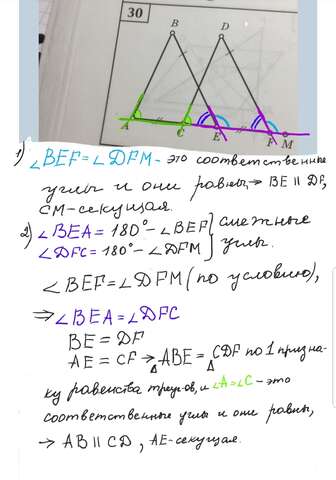 30
B D
A C E F M
1) ∠BEF = ∠DFM - это соответственные
углы и они равны, → BE || DF,
CM-секущая.
2) ∠BEA = 180° - ∠BEF } смежные
∠DFC = 180° - ∠DFM } углы.
∠BEF = ∠DFM (по условию),
⇒ ∠BEA = ∠DFC
BE = DF
AE = CF → △ABE = △CDF по 1 призна-
ку равенства треуг-ов, и ∠A=∠C - это
соответственные углы и они равны,
→ AB || CD, AE-секущая.